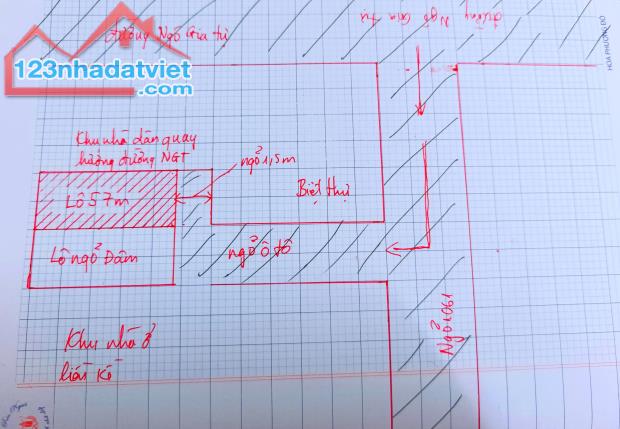 đường Ngô Gia Tự
đường Ngô Gia Tự
HOA PHƯỢNG ĐỎ
123nhadatviet.com
Khu nhà dân quay
hướng đường NGT
ngõ 1,5m
Lô 57m
Biệt thự
Lô ngõ Đâm
ngõ ô tô
Khu nhà ở
liền kề